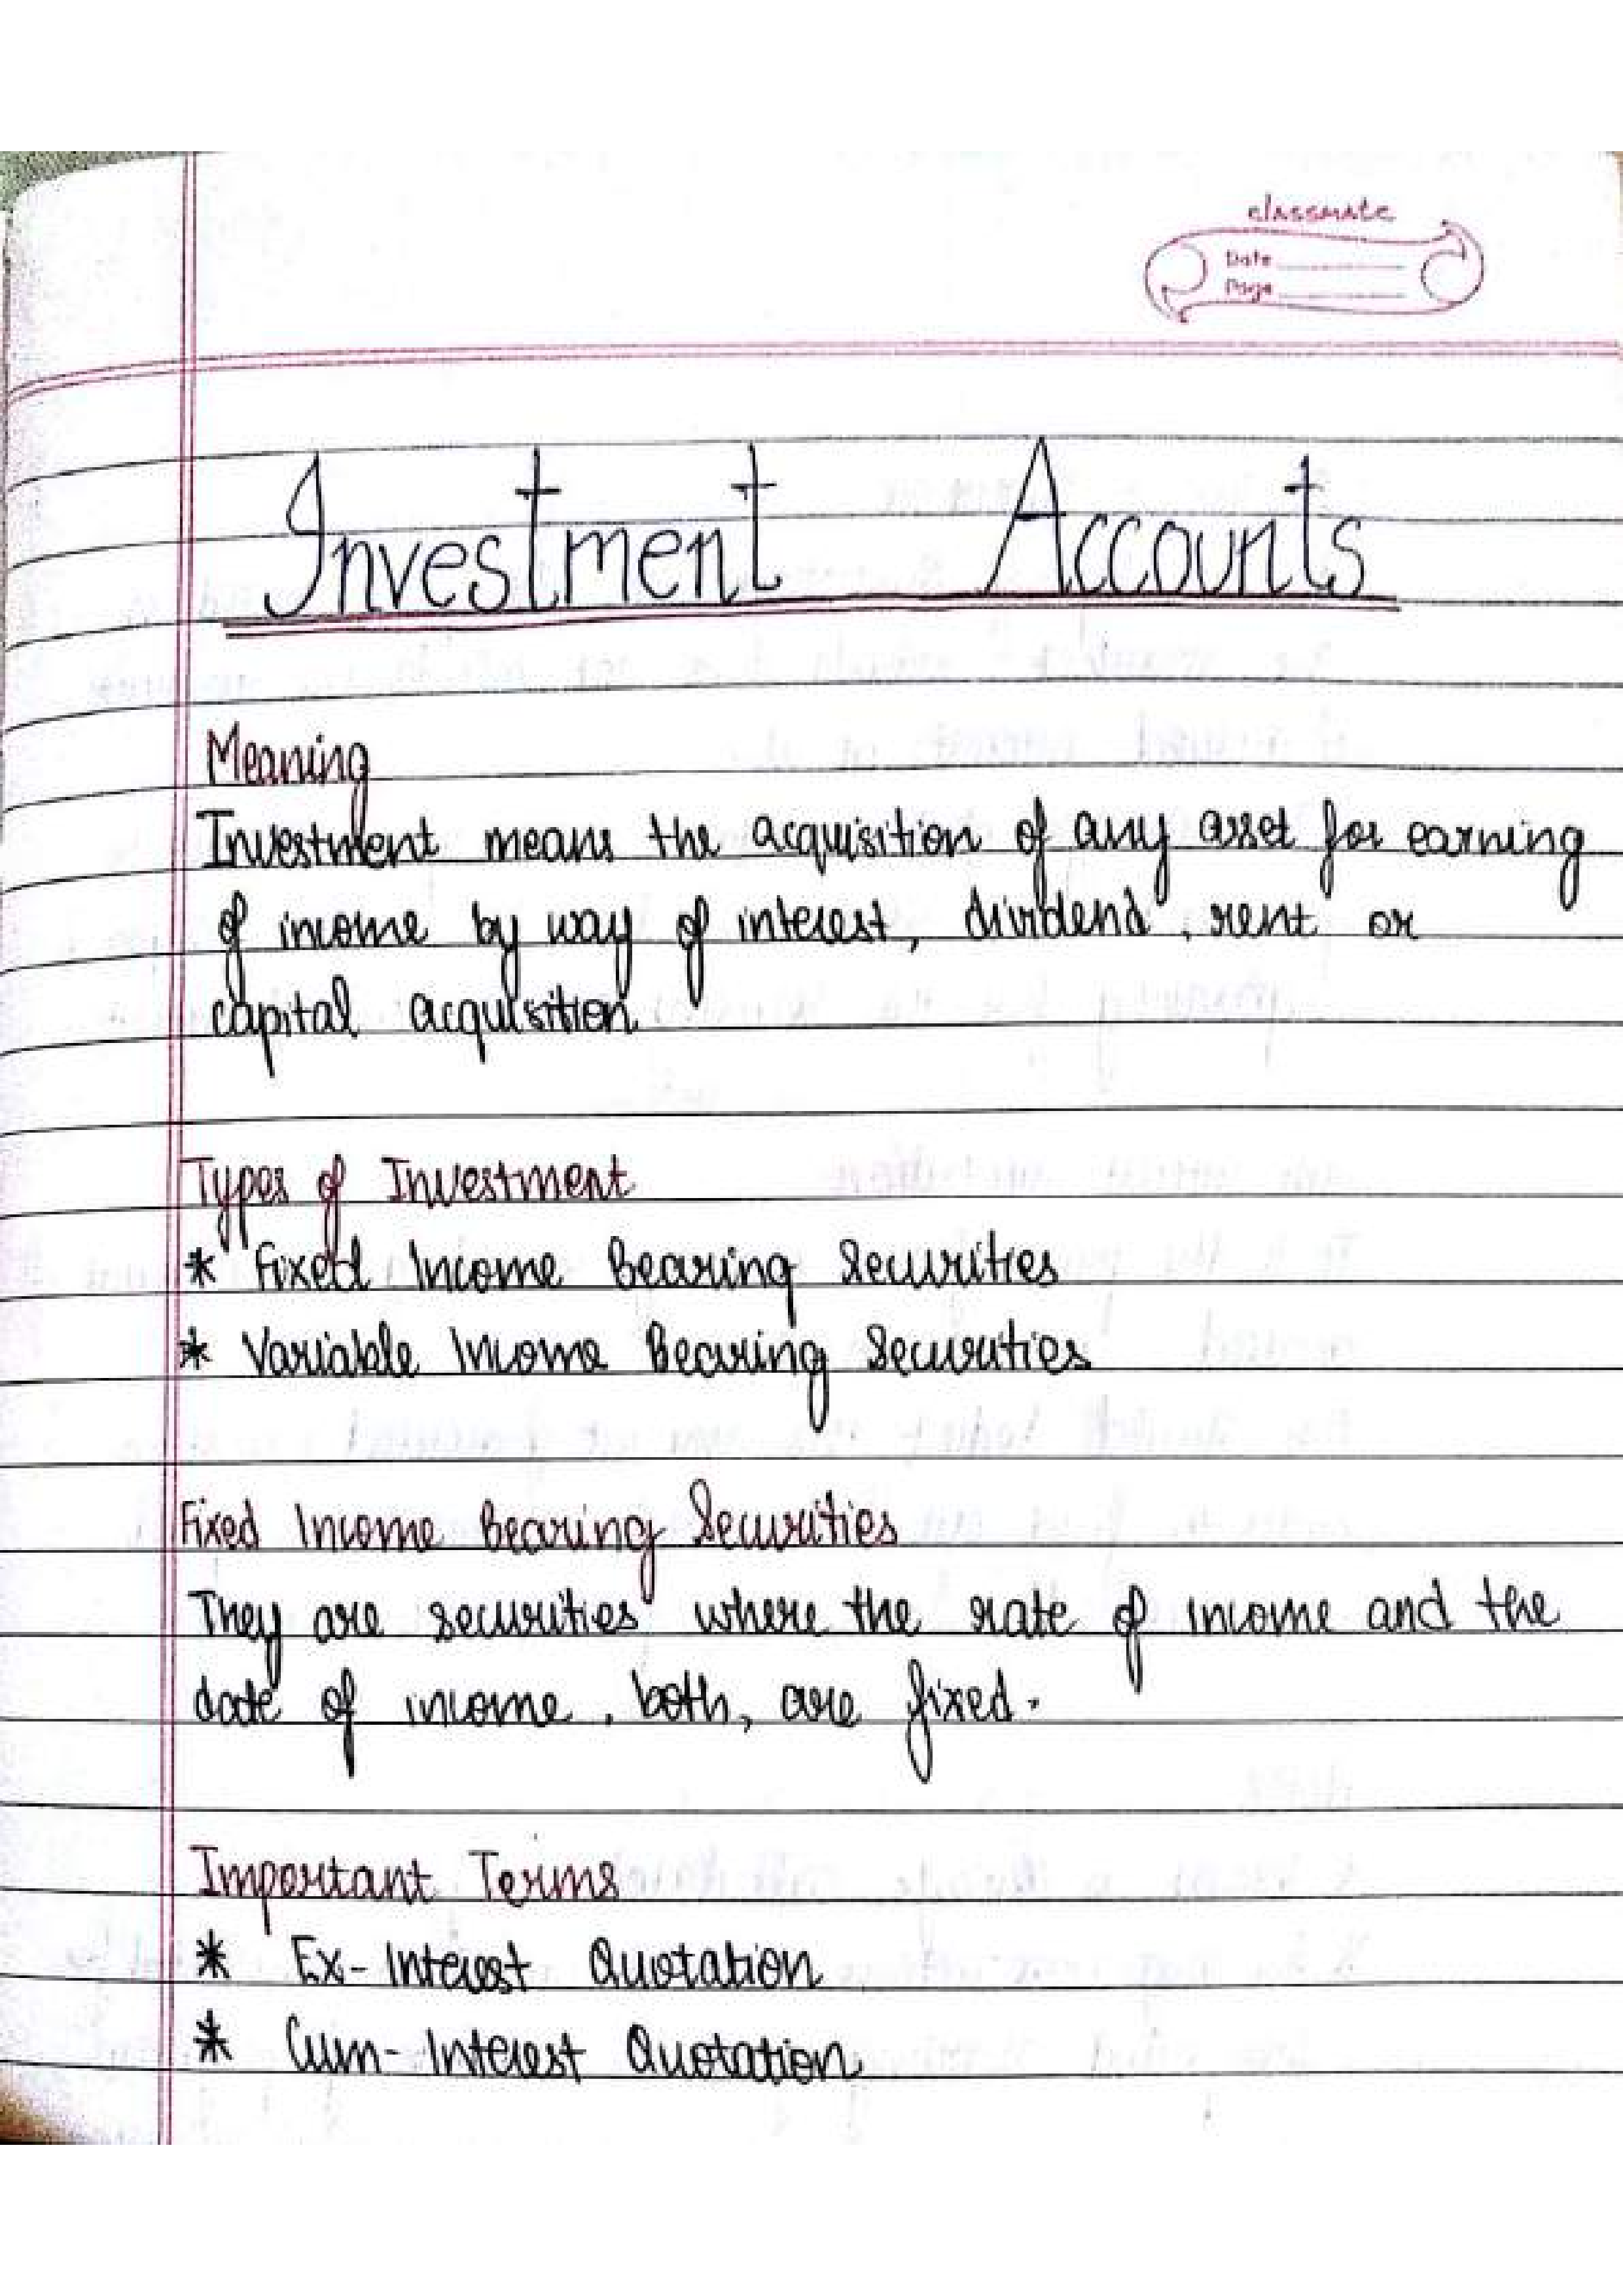 classmate
Date
Page
Investment Accounts
Meaning
Investment means the acquisition of any asset for earning
of income by way of interest, dividend, rent or
capital acquisition
Types of Investment
* Fixed Income Bearing Securities
* Variable Income Bearing Securities
Fixed Income Bearing Securities
They are securities where the rate of income and the
date of income, both, are fixed.
Important Terms
* Ex-Interest Quotation
* Cum-Interest Quotation